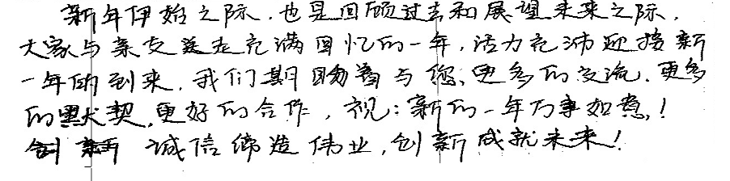 新年伊始之际，也是回顾过去和展望未来之际，
大家与亲友送走充满回忆的一年，活力充沛迎接新
一年的到来，我们期盼着与您、更多的交流、更多
的默契、更好的合作，祝：新的一年万事如意！
创新 诚信缔造伟业，创新成就未来！